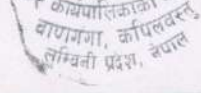 कार्यपालिकाको
बाणगंगा, कपिलवस्तु
लुम्बिनी प्रदेश, नेपाल